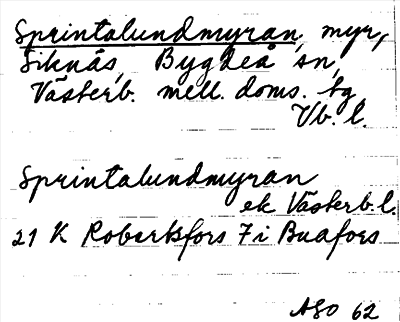 Sprintalundmyran, myr,
Siknäs, Bygdeå sn,
Västerb. mell. doms. tg
Vb. l.
Sprintalundmyran
ek Västerb. l.
21 K Robertsfors 7 i Buafors
ASO 62